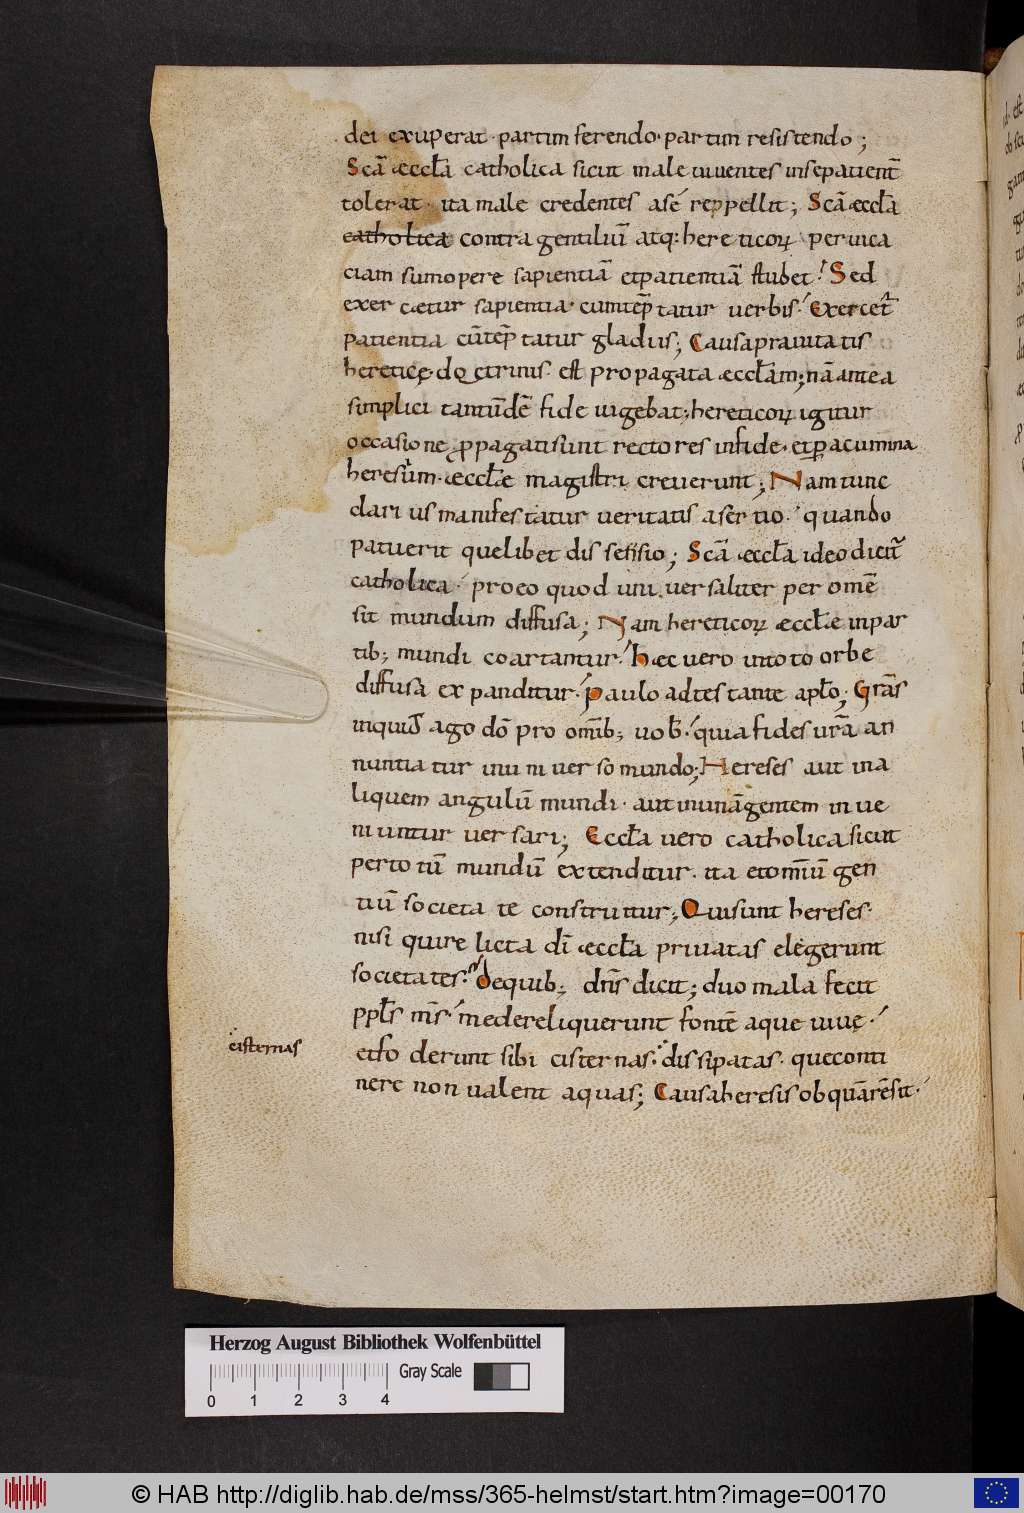 dei exuperat · partim ferendo · partim resistendo ;
Scā æccła catholica sicut male uiuentes insepatient̄
tolerat · ita male credentes asé reppellit ; Scā æccła
catholica contra gentiliū atq: hereticoꝝ peruica
ciam sumopere sapientiā etpatientiā studet · Sed
exercætur sapientia · cumtēptatur uerbis · Exercet᷑
patientia cūtēptatur gladiis ; Causaprauitatis
hereticę doctrinis · est propagata æccłam ; nā antea
simplici tantūdē fide uigebat ; hereticoꝝ igitur
occasione ꝓpagatisunt rectores infide · etꝑacumina
heresium · æccłæ magistri creuerunt ; Nam tunc
clarius manifestatur ueritatis asertio · quando
patuerit quelibet dissessio ; Scā æccła ideo dicit᷑
catholica · proeo quod uniuersaliter per omē
sit mundum diffusa ; Nam hereticoꝝ æccłæ inpar
tib; mundi coartantur · hæc uero intoto orbe
diffusa expanditur · paulo adtestante apło ; Grās
inquid ago dō pro omīb; uob̄ · quia fides urā an
nuntiatur inuniuerso mundo ; Hereses aut ina
liquem angulū mundi · aut inunāgentem inue
niuntur uersari ; Eccła uero catholica sicut
pertotū mundū extenditur · ita etomīū gen
tiū societate construitur ; Quisunt hereses ·
nisi quirelicta dī æccła priuatas elegerunt
societates · dequib; dn̄s dicit ; duo mala fecit
pplʼs m̄s · medereliquerunt fontē aque uiuę ·
etfoderunt sibi cisternas · dissipatas · queconti
cisternas
nere non ualent aquas ; Causaheresis obquārēsit ·
Herzog August Bibliothek Wolfenbüttel
Gray Scale
0 1 2 3 4
© HAB http://diglib.hab.de/mss/365-helmst/start.htm?image=00170